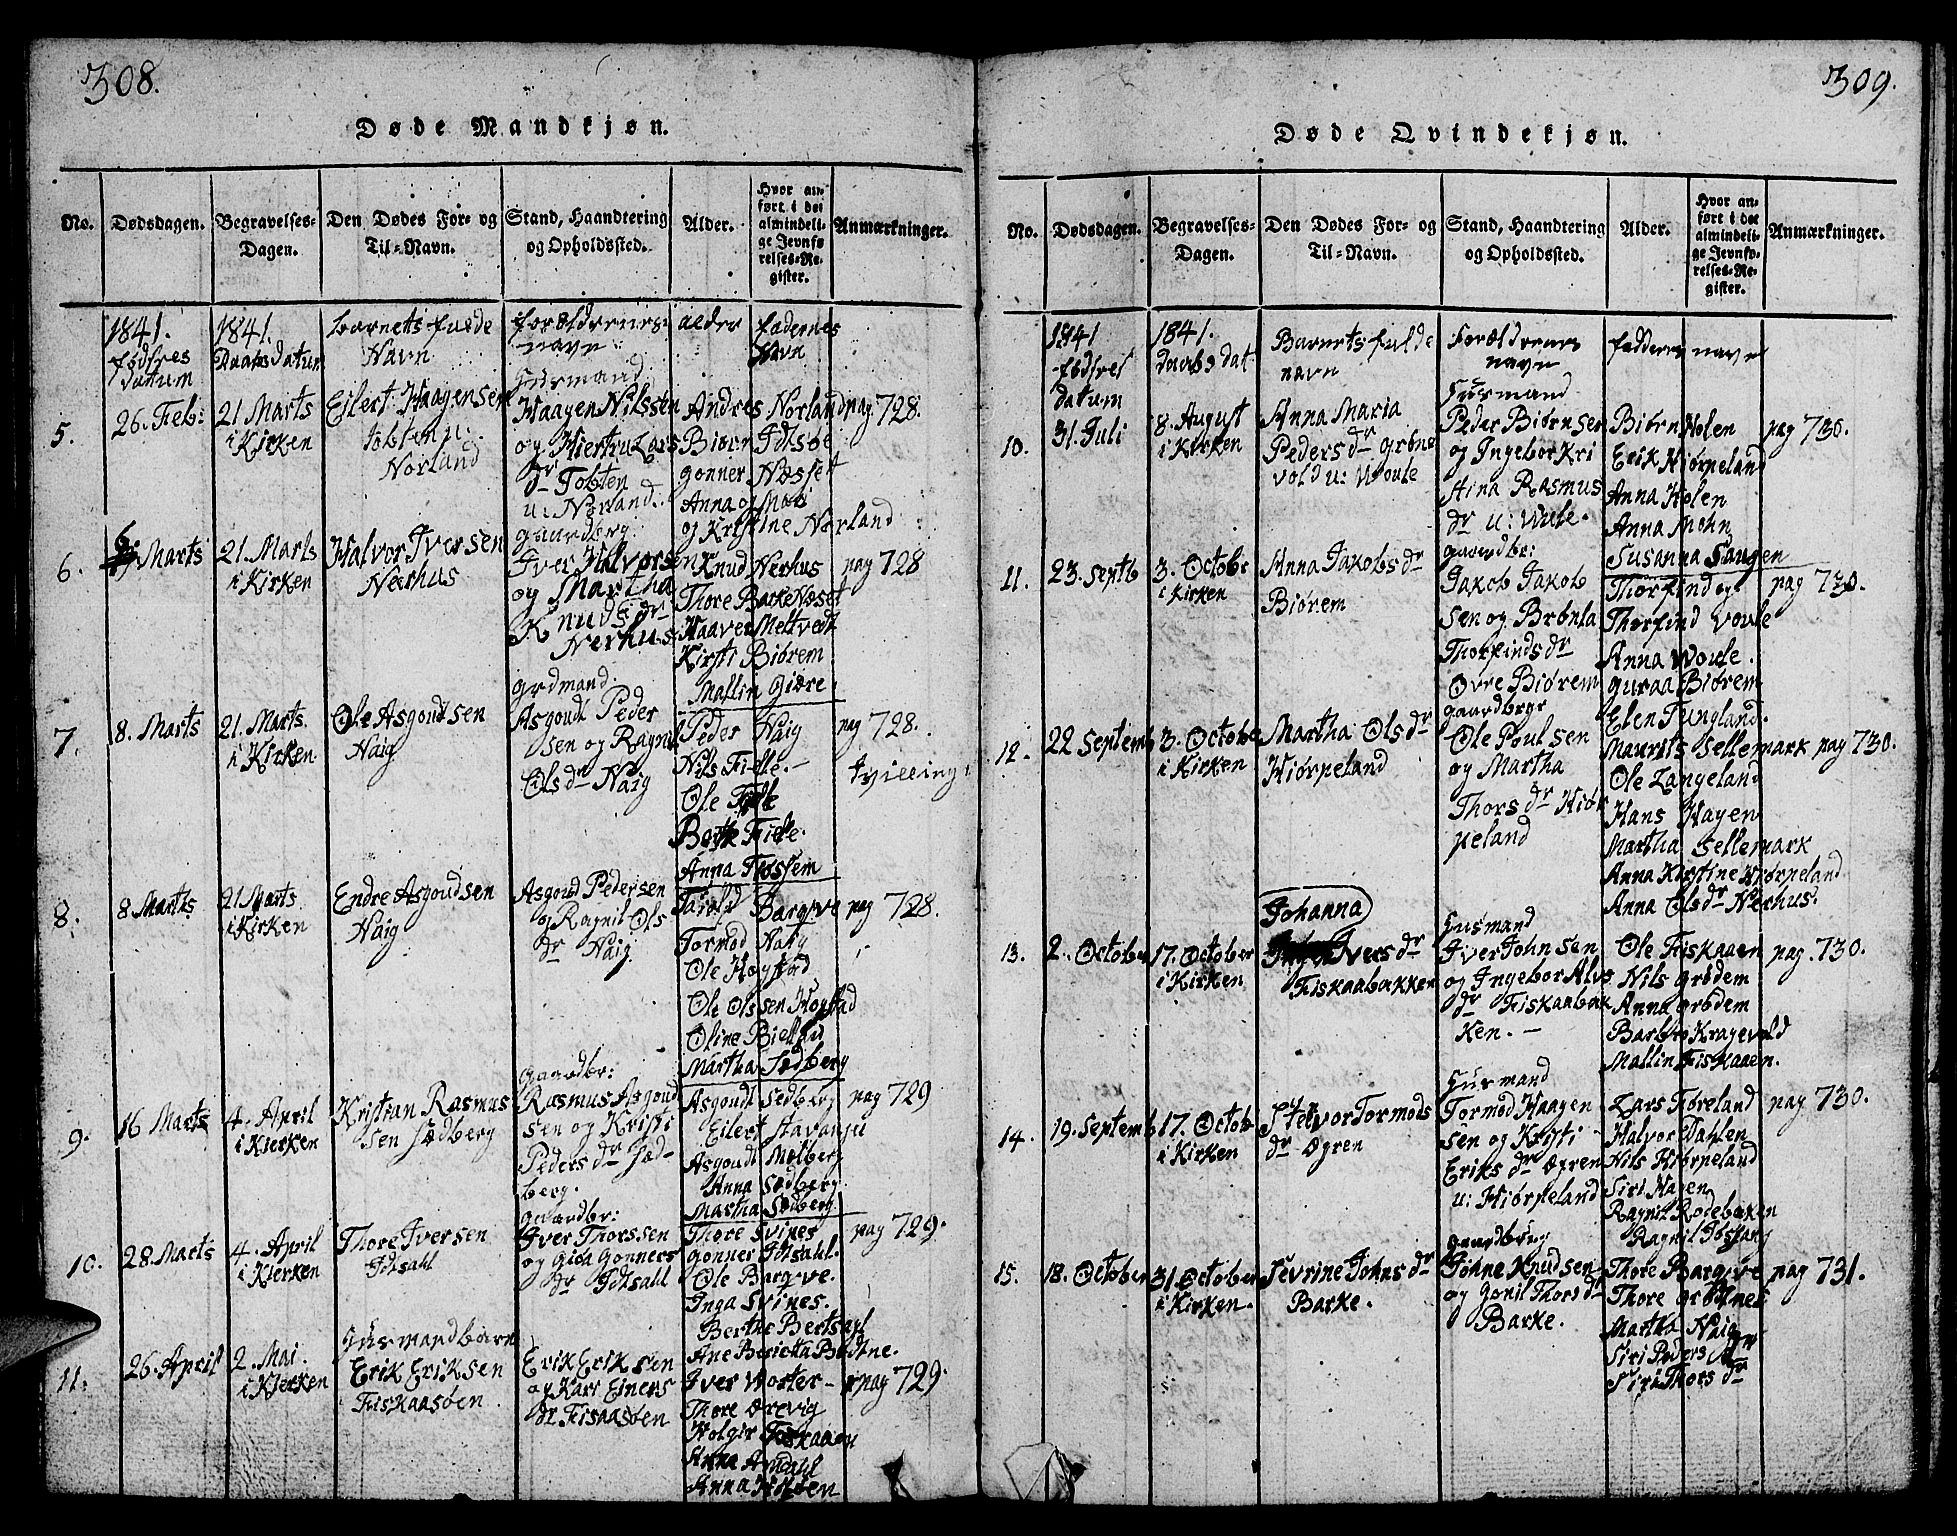 308.
Døde Mandkjøn.
No. Dødsdagen. Begravelses-Dagen. Den Dødes For- og Til-Navn. Stand, Haandtering og Opholdssted. Alder. Hvor anført i det almindelige Jevnførelses-Register. Anmærkninger.
1841. fødsres datum
1841. Daabs datum
barnets fulde Navn
forældrenes navn
aldre
fadernes Navn
5.
26. Feb:
21 Marts i Kirken
Eilert Haagensen
Tobten u:
Norland
Husmand
Haagen Nilssen
og Kiestru Lars
dr Tobten
u: Norland.
Andres Norland
Biørn Idtsøe
gonner Næsset
Anna og Mari
og Kristine Norland
pag 728.
6.
6 Marts
21. Marts i Kirken
Halvor Iversen
Nerhus
gaardbrg:
Iver Halvorsen
og Martha
Knudsdr
Nerhus
Knud Nerhus
Thore Barke Næset
Haaver Meltvedt
Kirsti Biørem
Mallin Giære
pag 728
7.
8. Marts
21. Marts. i Kirken
Ole Asgoudsen
Naig
grdmand
Asgoudt Peder
sen og Ragnil
Olsdr Naig
Peder Naig
Nils Fielle.
Ole Fielle
Berthe Fielle.
Anna Fossem
pag 728.
tvilling
8.
8 Marts
21 Marts i Kirken
Endre Asgoudsen
Naig
Asgoud Pedersen
og Ragnil Ols
dr Naig
Barqve
Tormod Naig
Ole Høgstad
Ole Olssen Høgstad
Oline Bielland
Martha Sødberg
pag 728.
9.
16 Marts
4. April i Kierken
Kristian Rasmus
sen Sødberg
gaardbr:
Rasmus Asgoud
sen og Kristi
Peders dr Sød-
berg.
Asgoudt Sedberg
Eilert Stavanju
Asgoudt Molberg
Anna Sødberg
Martha Sødberg
pag 729
10.
28. Marts
4. April i Kierken
Thore Iversen
Idtsahl
gaardbr:
Iver Thorssen
og Gida Gonners
dr Idtsall
Thore Svines
gonner Idtsahl.
Ole Barqve.
Inga Svines.
Berthe Bertsahl
pag 729.
11.
26. April
2. Mai. i Kierken
Husmandbarn
Erik Eriksen
Fiskaasøen
Erik Eriksen
og Kari Einers
dr Fisaasøen
Ane Bericta Bødtne.
Iver Worter
Thore Ørevig
Holgir Fiskaaen
Anna Amdahl
Anna Holden
pag 729.
309.
Døde Qvindekjøn.
No. Dødsdagen. Begravelses-Dagen. Den Dødes For- og Til-Navn. Stand, Haandtering og Opholdssted. Alder. Hvor anført i det almindelige Jevnførelses-Register. Anmærkninger.
1841 fødsres datum
1841. daabs dat
Barnets fulde navn
Forældrenes navn
fadderes navn
10.
31. Juli
8. August i Kirken
Anna Maria
Pedersdr Grøne
vold u: Woule
Husmand
Peder Biørnsen
og Ingebor Kri
stina Rasmus
dr u: Wole.
Biørn Holen
Erik Hiørpeland
Anna Holen
Anna Mohn
Susanna Sangen
pag 730.
11.
23. Septb
3. Octobe i Kirken
Anna Jakobsdr
Biørem
gaardbr:
Jakob Jakob
sen og Brønla
Thorfinds dr
Øvre Biørem
Thorfind og
Thorfind Voule
Anna Woule.
guraa Biørem
Elen Tungland.
pag 730.
12.
22 Septemb
3. October i Kirken
Martha Olsdr
Hiørpeland
gaardbrgr
Ole Poulsen
og Martha
Thors dr Hiør
peland
Maurits Sellemark
Ole Langeland
Hans Hagen
Martha Sellemark
Anna Kirstine Hiørpeland
Anna Olsdr Nerhus.
pag 730.
13.
2. October
17. October i Kirken
Johanna
Iversdr
Fiskaabakken
Husmand
Iver Johnsen
og Ingebor Alvs
dr Fiskaabak
ken.
Ole Fiskaaen
Nils grødem
Anna grødem
Barbro Kragevold
Mallin Fiskaaen.
pag. 730.
14.
19. Septemb
17. Octob i Kirken
Stelvor Tormods
dr Øgren
Husmand
Tormod Haagen
sen og Kristi
Eriks dr Øgren
u: Hiørpeland
Lars Føreland
Halvor Dahlen
Nils Hiørpeland
Siri Hagen
Ragnil Rodebaken
Ragnil Jøssang
pag 730.
15.
18. October
31. October i Kirken.
Sevrine Johnsdr
Barke.
gaardbrug
Johne Knudsen
og Gonil Thorsdr
Barke.
Thore Barqve
Thore grøtnes
Martha Naig
Siri Peders dr
Siri Thorsdr
pag 731.